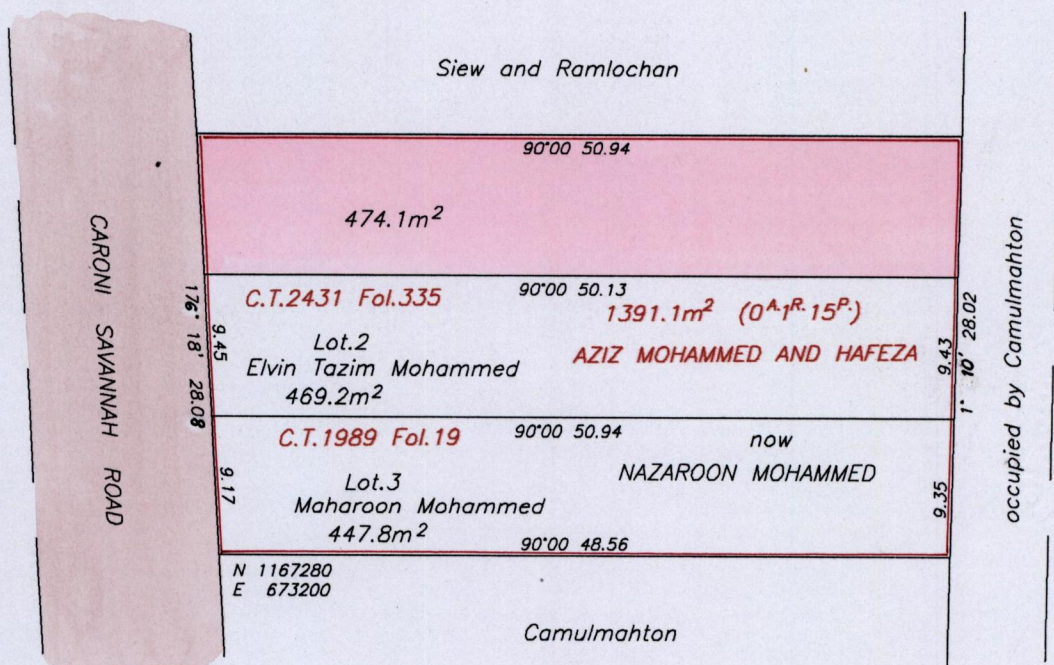 Siew and Ramlochan
90°00 50.94
474.1m²
CARONI SAVANNAH ROAD
176° 18' 28.08
C.T.2431 Fol.335
90°00 50.13
1391.1m² (0A.1R.15P.)
9.45
Lot.2
Elvin Tazim Mohammed
469.2m²
AZIZ MOHAMMED AND HAFEZA
9.43
1° 10' 28.02
occupied by Camulmahton
C.T.1989 Fol.19
90°00 50.94
now
NAZAROON MOHAMMED
9.17
Lot.3
Maharoon Mohammed
447.8m²
9.35
90°00 48.56
N 1167280
E 673200
Camulmahton